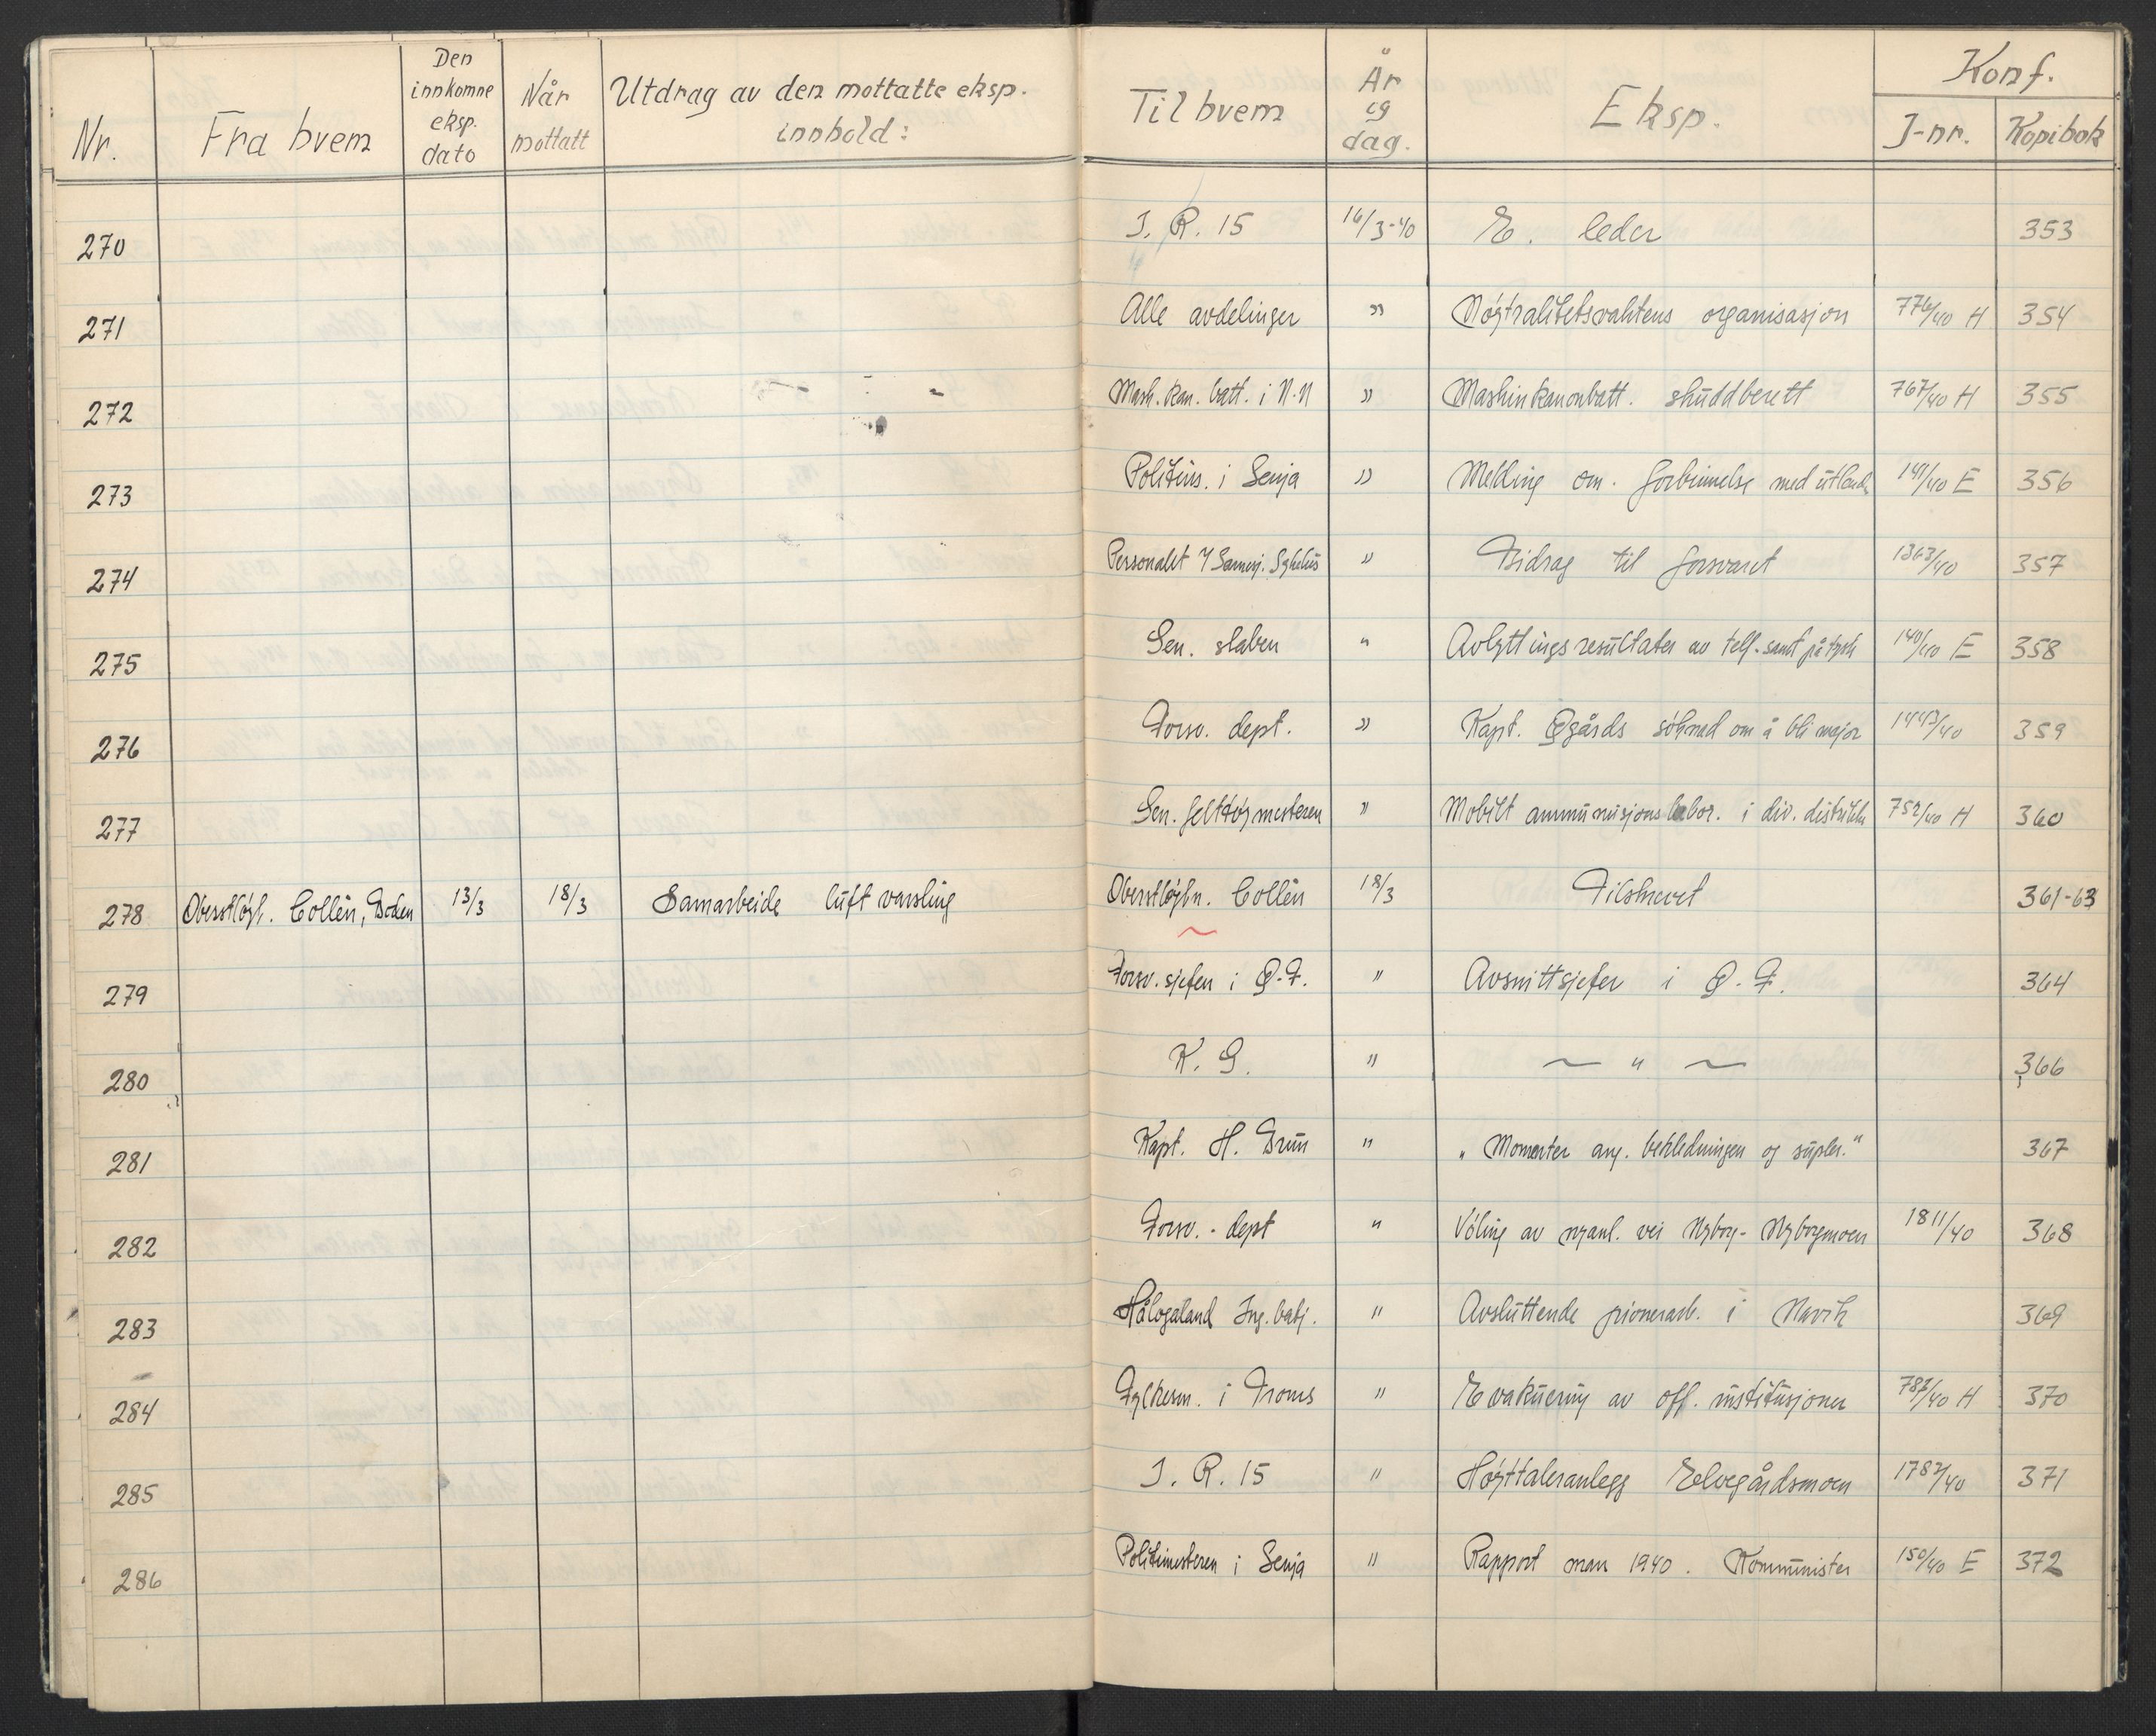 Nr. Fra hvem Den innkomne eksp. dato Når mottatt Utdrag av den mottatte eksp. innhold: Til hvem År og dag. Eksp. Konf. J-nr. Kopibok
270 I. R. 15 16/3-40 E. leder 353
271 Alle avdelinger " Nøytralitetsvaktens organisasjon 776/40 H 354
272 Mask. kan. batt. i N.N " Maskinkanonbatt. skuddberett 767/40 H 355
273 Politims. i Senja " Melding om. forbinnelse med utland 141/40 E 356
274 Personalet " Bidrag til forsvaret 1363/40 357
275 Gen. staben " Avlyttingsresultater av telf. samt på tysk 140/40 E 358
276 Forsv. dept. " Kapt. Øgårds søknad om å bli major 1443/40 359
277 Gen. felttøymesteren " Mobilt ammunisjons labor. i div. distrikt 752/40 H 360
278 Oberstløyt. Collén, Boden 13/3 18/3 Samarbeide luft varsling Oberstløytn. Collén 18/3 Tilskrevet 361-63
279 Forsv. sjefen i Ø.F. " Avsnittsjefer i Ø.F. 364
280 K. G. " — " — 366
281 Kapt. H. Brun " "Momenter ang. bekledningen og supler." 367
282 Forsv. - dept " Vøling av nyanl. vei Nyborg - Nyborgmoen 1811/40 368
283 Hålogaland Ing. batj. " Avsluttende pionerarb. i Narvik 369
284 Fylkesm. i Troms " Evakuering av off. institusjoner 787/40 H 370
285 I. R. 15 " Høyttaleranlegg Elvegårdsmoen 1782/40 371
286 Politimesteren i Senja " Rapport mars 1940. Kommunister 150/40 E 372